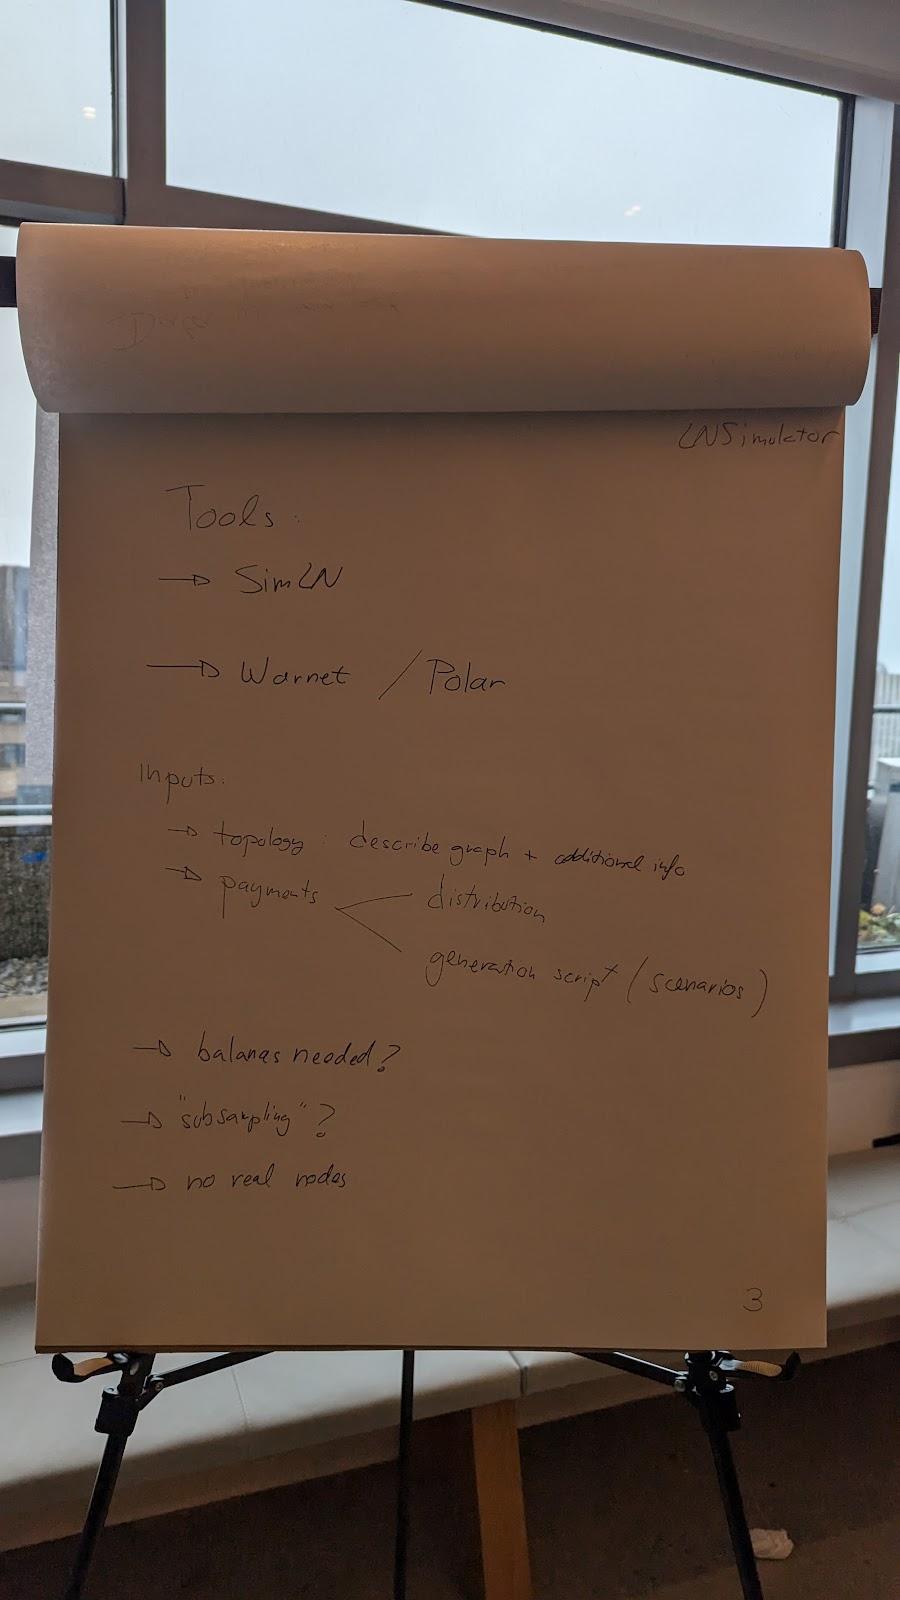 LNSimulator
Tools:
→ SimLN
→ Warnet / Polar
Inputs:
→ topology: describe graph + additional info
→ payments
distribution
generation script (scenarios)
→ balances needed?
→ "subsampling"?
→ no real nodes
3